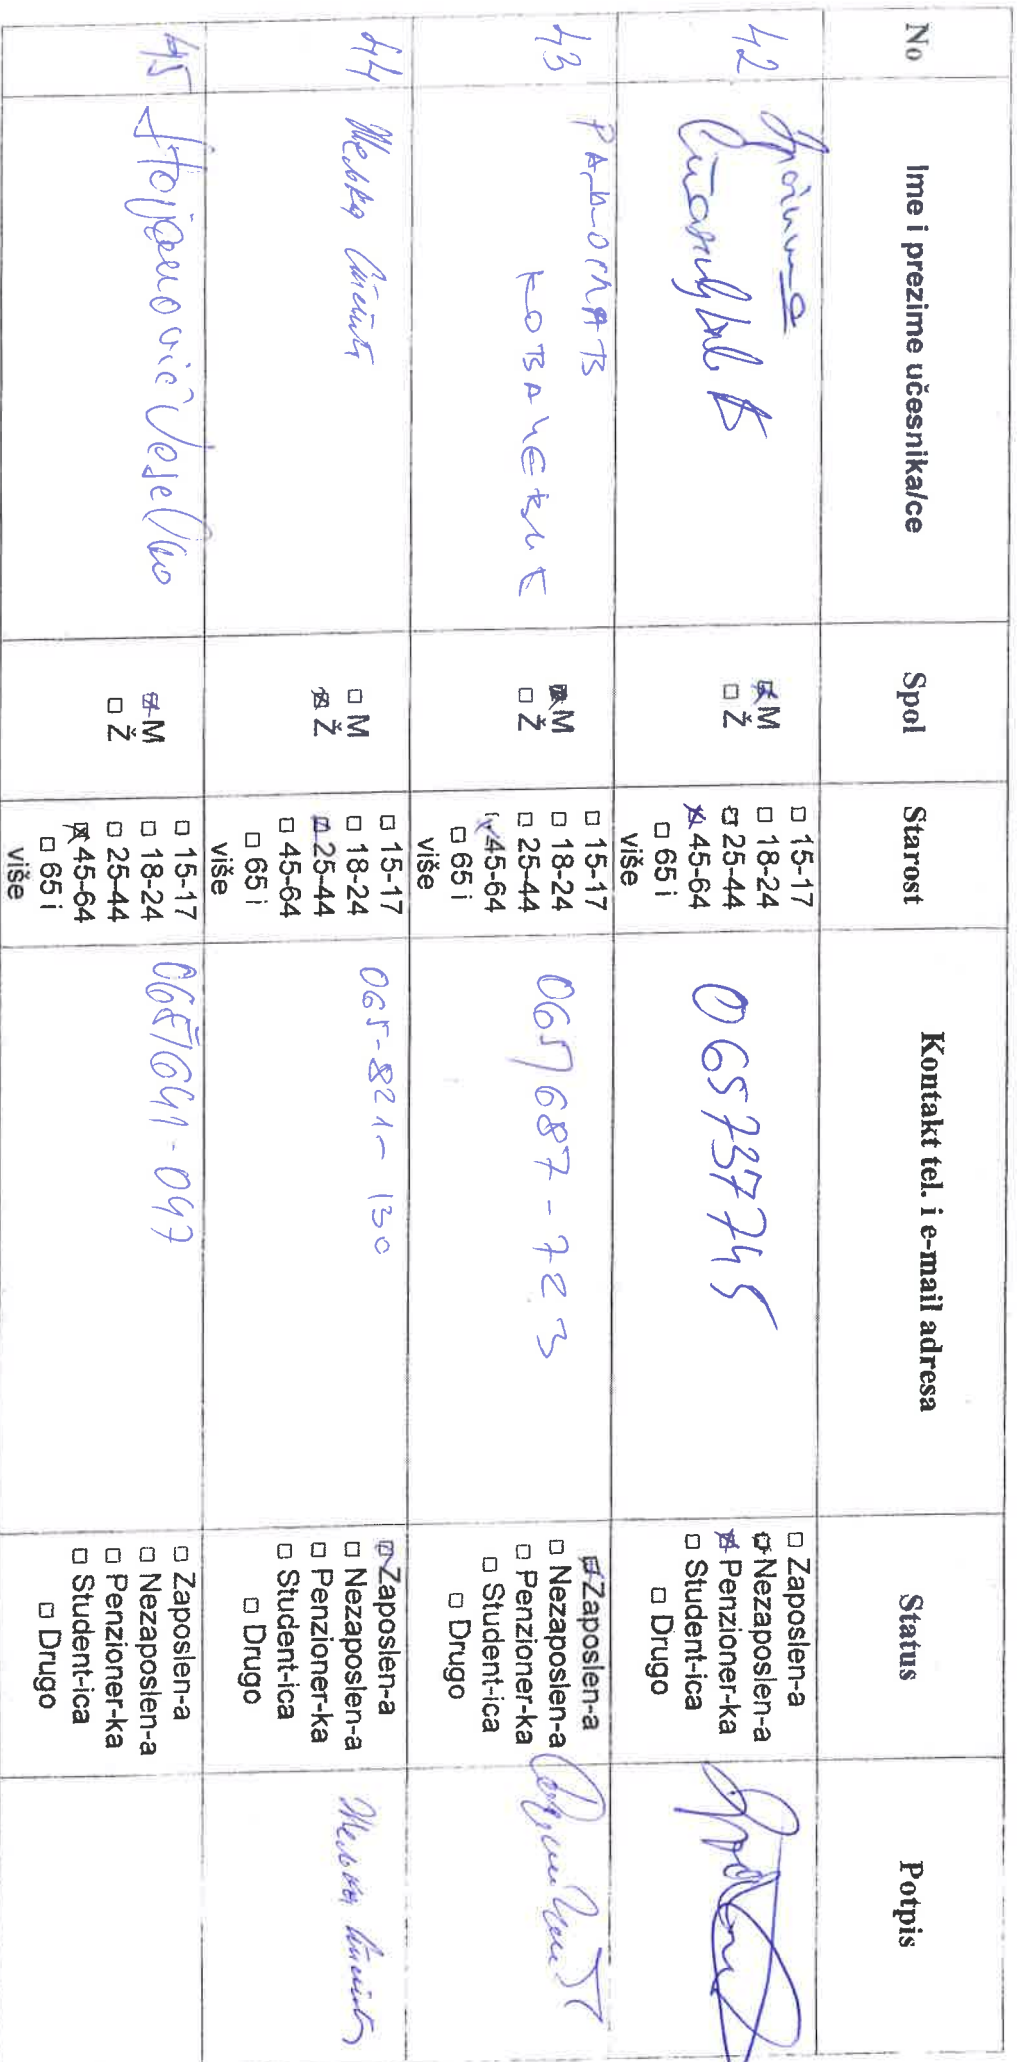 No Ime i prezime učesnika/ce Spol Starost Kontakt tel. i e-mail adresa Status Potpis
42
□ M
□ Ž
□ 15-17
□ 18-24
□ 25-44
□ 45-64
□ 65 i
više
065737745
□ Zaposlen-a
□ Nezaposlen-a
□ Penzioner-ka
□ Student-ica
□ Drugo
43
□ M
□ Ž
□ 15-17
□ 18-24
□ 25-44
□ 45-64
□ 65 i
više
065/687-723
□ Zaposlen-a
□ Nezaposlen-a
□ Penzioner-ka
□ Student-ica
□ Drugo
44
□ M
□ Ž
□ 15-17
□ 18-24
□ 25-44
□ 45-64
□ 65 i
više
065-821-130
□ Zaposlen-a
□ Nezaposlen-a
□ Penzioner-ka
□ Student-ica
□ Drugo
45 Stojanović Veselko
□ M
□ Ž
□ 15-17
□ 18-24
□ 25-44
□ 45-64
□ 65 i
više
065/641-047
□ Zaposlen-a
□ Nezaposlen-a
□ Penzioner-ka
□ Student-ica
□ Drugo